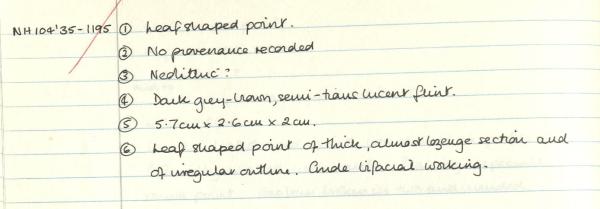 NH104'35-1195 ① Leaf shaped point.
② No provenance recorded
③ Neolithic?
④ Dark grey-brown, semi-translucent flint.
⑤ 5.7cm x 2.6cm x 2cm.
⑥ Leaf shaped point of thick, almost lozenge section and
of irregular outline. Crude bifacial working.